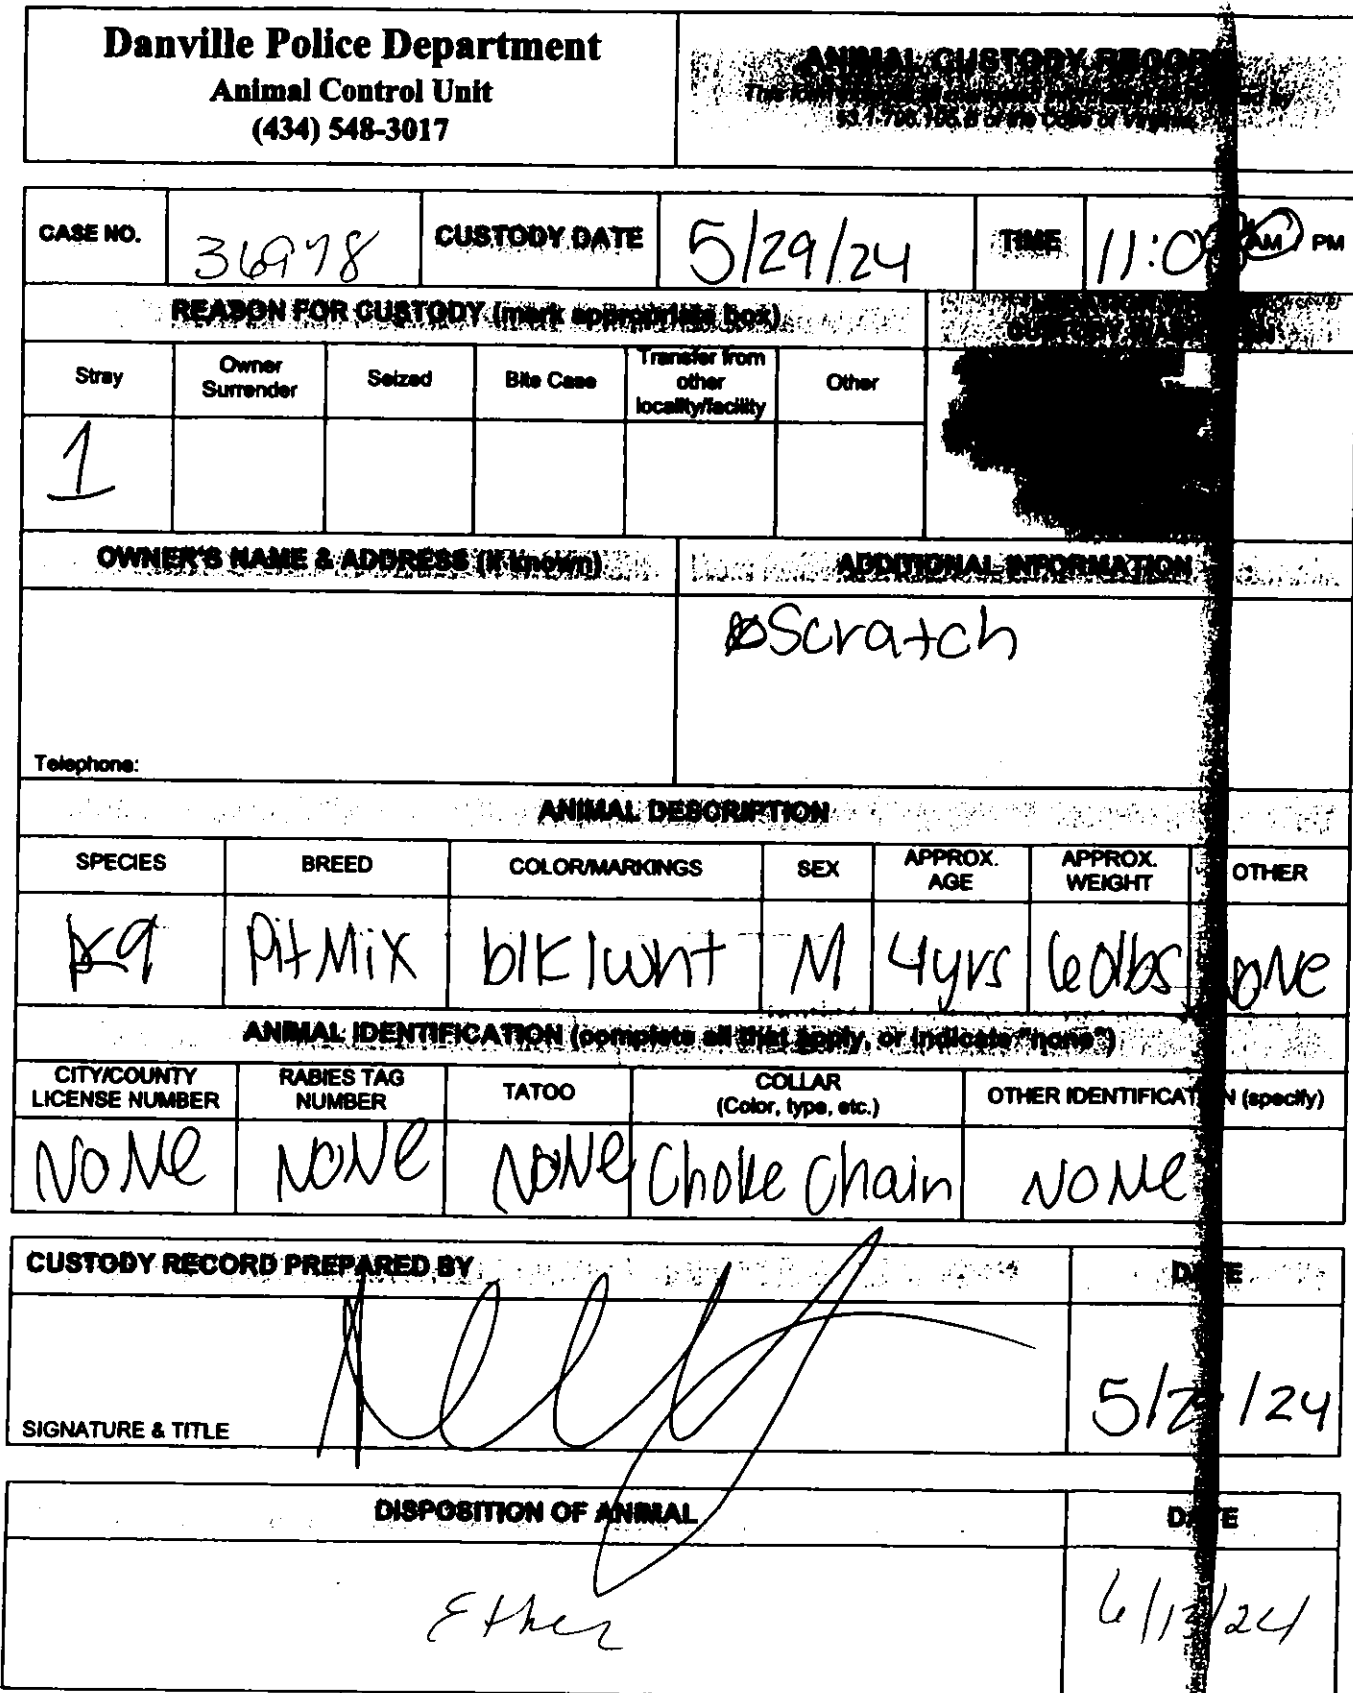 Danville Police Department
Animal Control Unit
(434) 548-3017
ANIMAL CUSTODY RECORD
CASE NO. 36978 CUSTODY DATE 5/29/24 TIME 11:0 AM / PM
REASON FOR CUSTODY (mark appropriate box)
Stray Owner Surrender Seized Bite Case Transfer from other locality/facility Other
1
OWNER'S NAME & ADDRESS (if known) ADDITIONAL INFORMATION
Scratch
Telephone:
ANIMAL DESCRIPTION
SPECIES BREED COLOR/MARKINGS SEX APPROX. AGE APPROX. WEIGHT OTHER
K9 Pit Mix blk/wht M 4yrs 60lbs
ANIMAL IDENTIFICATION (complete all that apply, or indicate "none")
CITY/COUNTY LICENSE NUMBER RABIES TAG NUMBER TATOO COLLAR (Color, type, etc.) OTHER IDENTIFICATION (specify)
NONe NONe NONe Choke Chain NONe
CUSTODY RECORD PREPARED BY DATE
5/2 /24
SIGNATURE & TITLE
DISPOSITION OF ANIMAL DATE
6/13/24